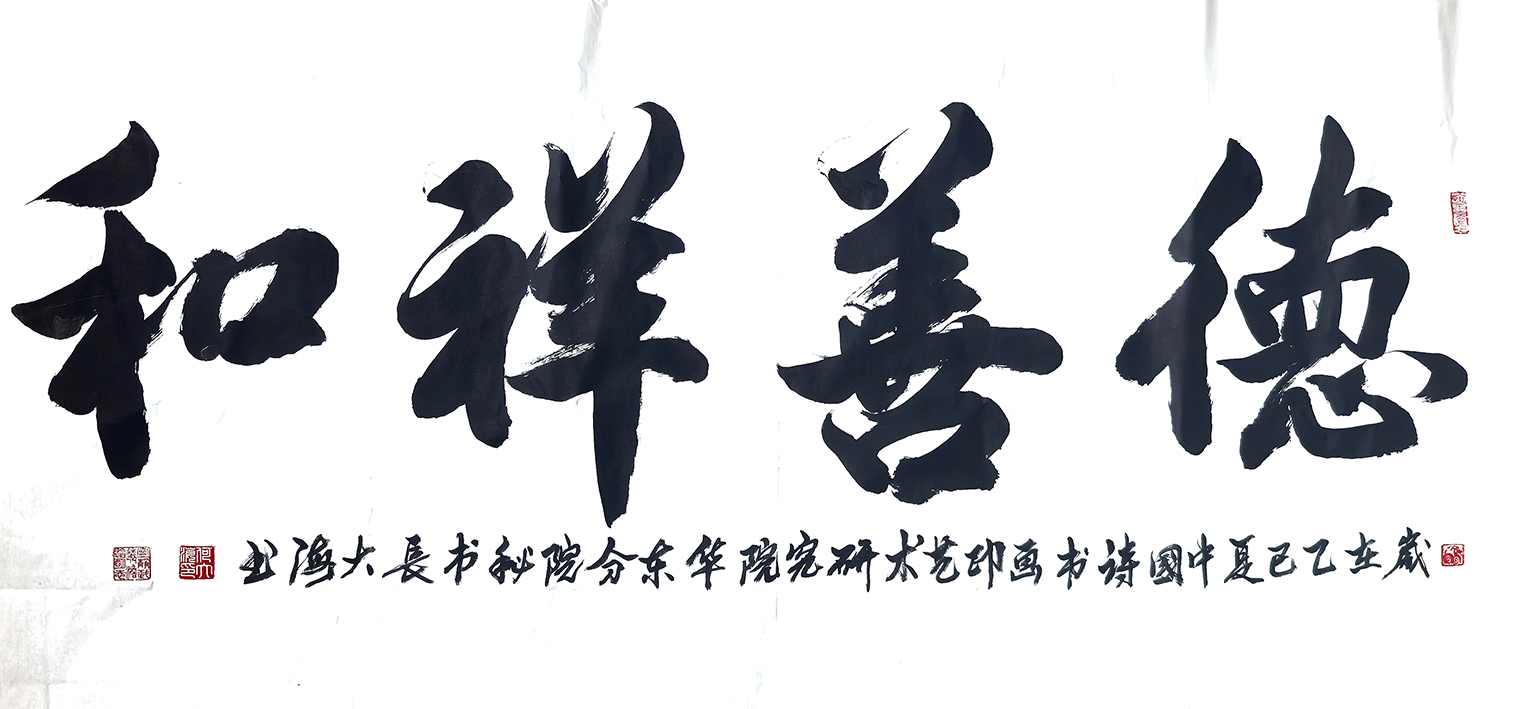 德善祥和
歲在乙巳夏中國詩书画印艺术研究院华东分院秘书長大海书
何大海印